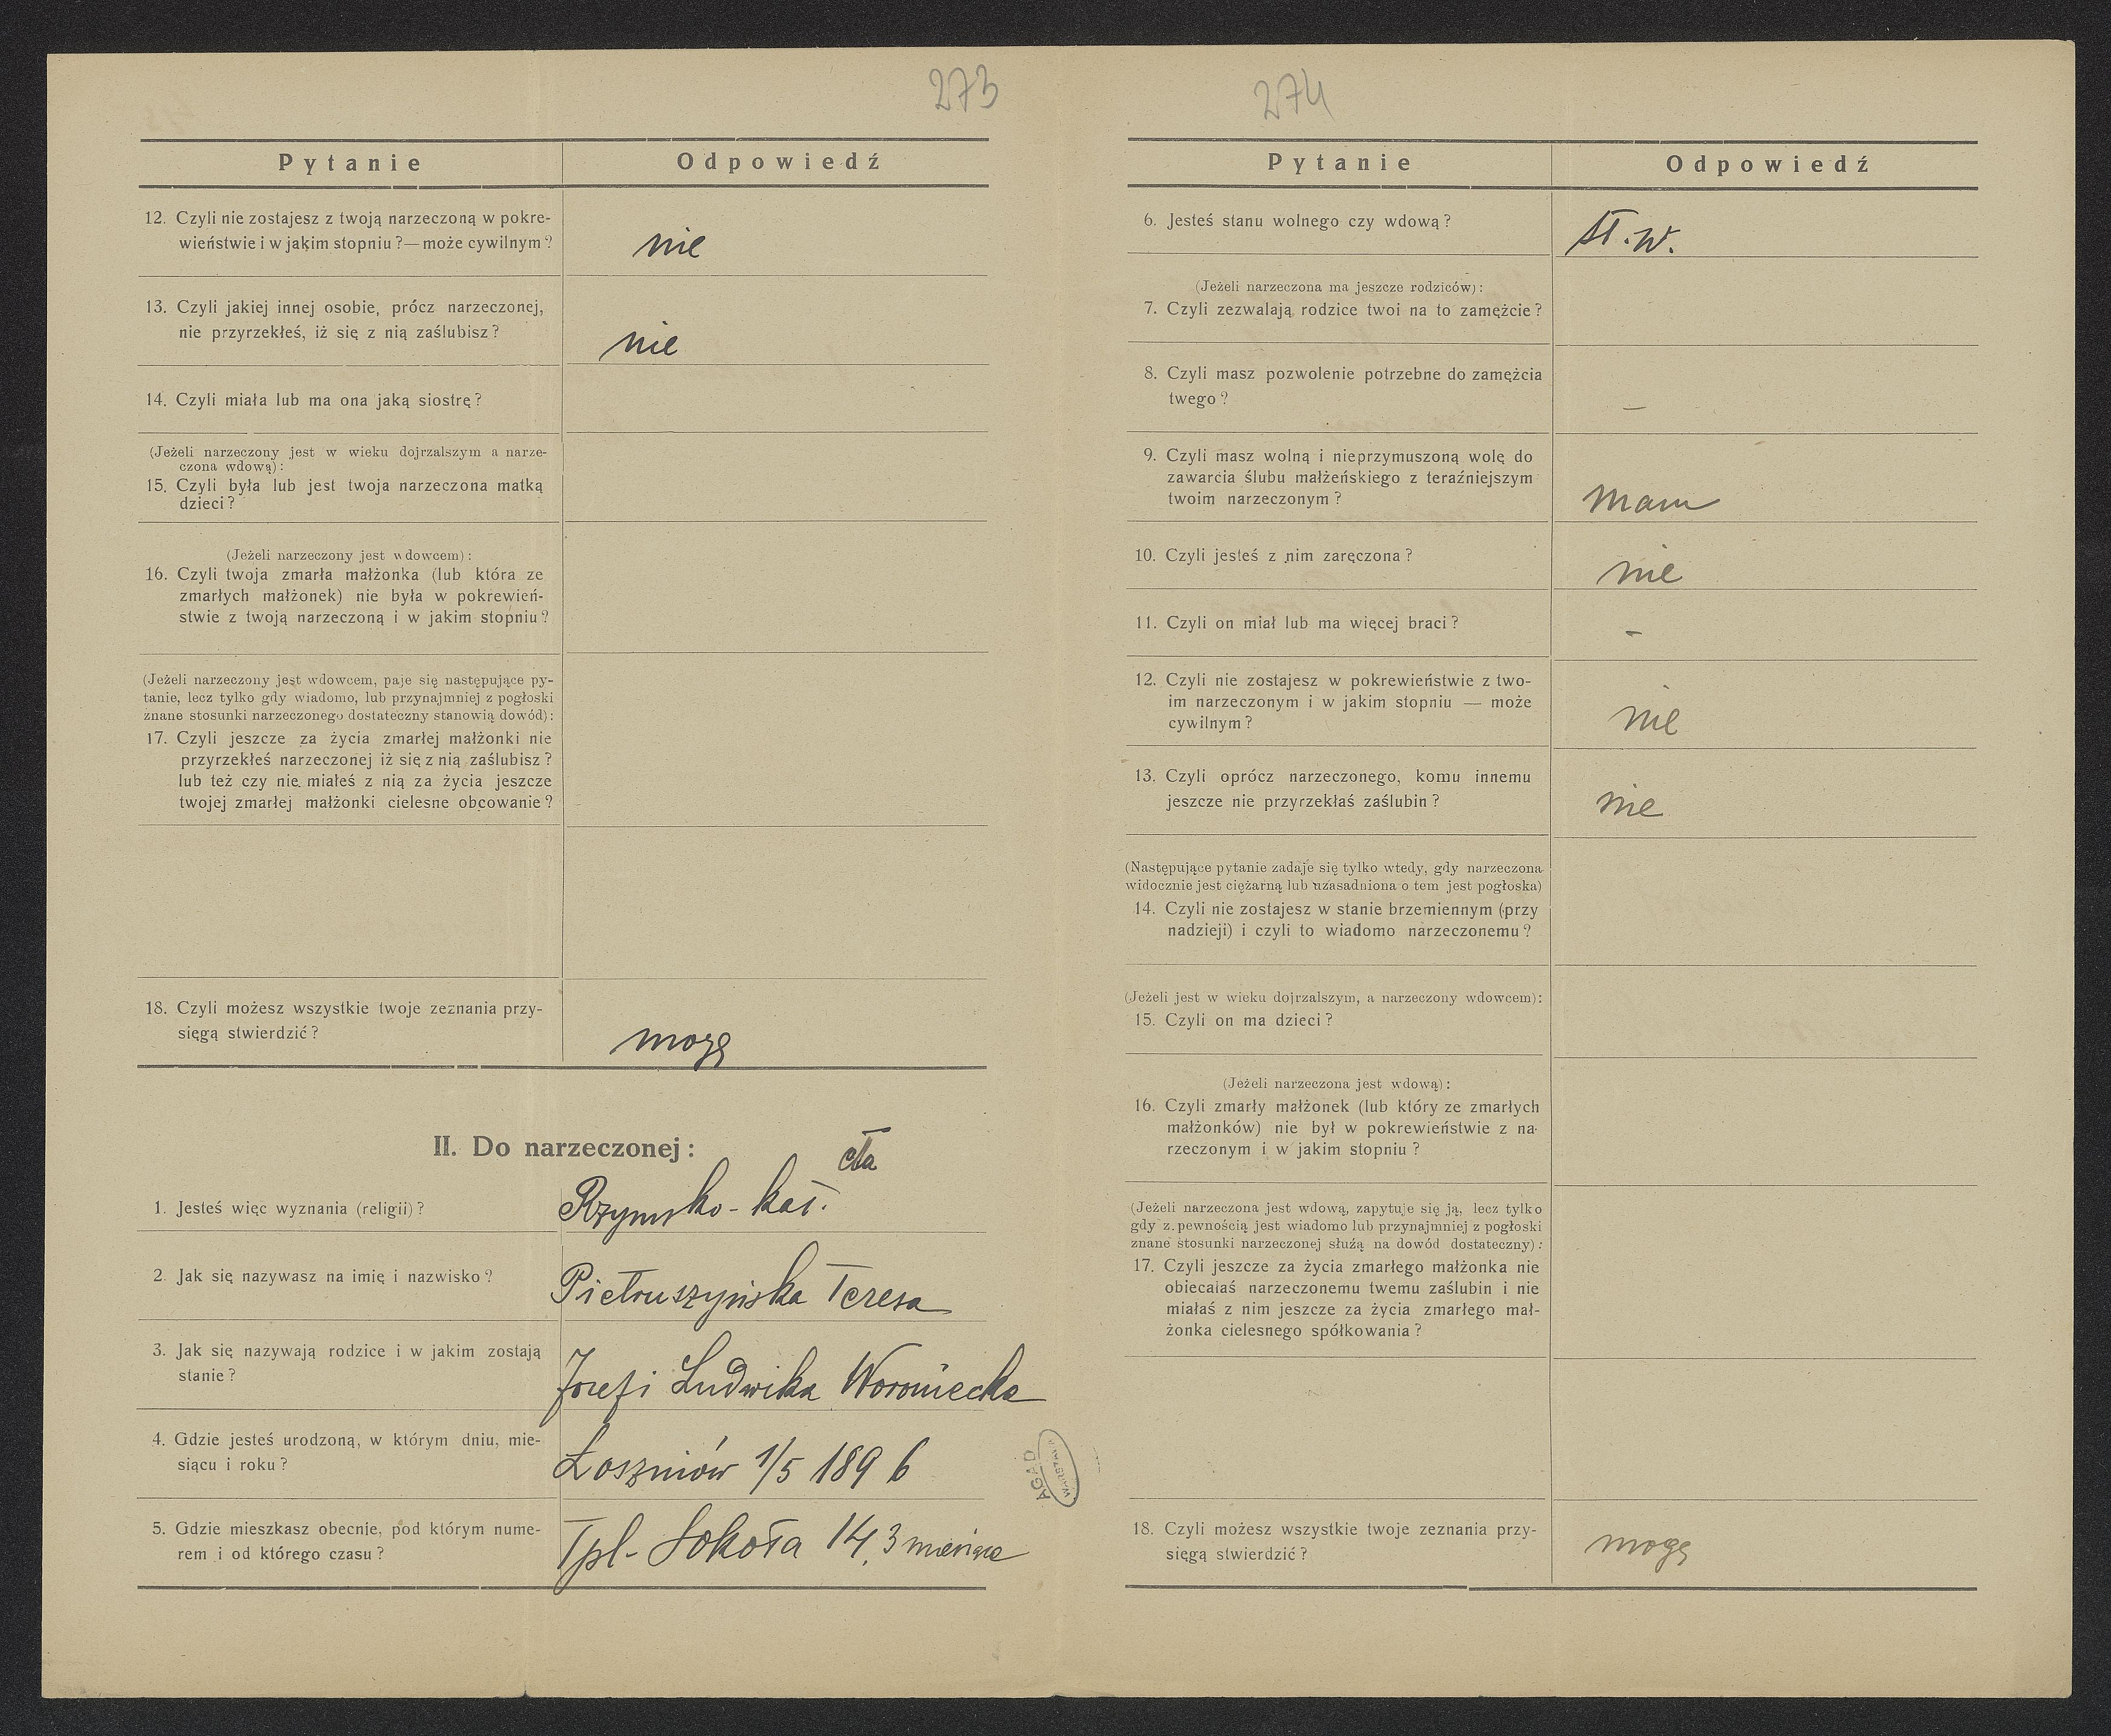 273
Pytanie Odpowiedź
12. Czyli nie zostajesz z twoją narzeczoną w pokre-
wieństwie i w jakim stopniu ?— może cywilnym ?
nie
13. Czyli jakiej innej osobie, prócz narzeczonej,
nie przyrzekłeś, iż się z nią zaślubisz ?
nie
14. Czyli miała lub ma ona jaką siostrę ?
(Jeżeli narzeczony jest w wieku dojrzalszym a narze-
czona wdową) :
15. Czyli była lub jest twoja narzeczona matką
dzieci ?
(Jeżeli narzeczony jest wdowcem) :
16. Czyli twoja zmarła małżonka (lub która ze
zmarłych małżonek) nie była w pokrewień-
stwie z twoją narzeczoną i w jakim stopniu ?
(Jeżeli narzeczony jest wdowcem, paje się następujące py-
tanie, lecz tylko gdy wiadomo, lub przynajmniej z pogłoski
znane stosunki narzeczonego dostateczny stanowią dowód) :
17. Czyli jeszcze za życia zmarłej małżonki nie
przyrzekłeś narzeczonej iż się z nią zaślubisz ?
lub też czy nie miałeś z nią za życia jeszcze
twojej zmarłej małżonki cielesne obcowanie ?
18. Czyli możesz wszystkie twoje zeznania przy-
sięgą stwierdzić ?
mogę
II. Do narzeczonej :
cła
1. Jesteś więc wyznania (religii) ?
Rzymsko-kat.
2. Jak się nazywasz na imię i nazwisko ?
Pietruszyńska Teresa
3. Jak się nazywają rodzice i w jakim zostają
stanie ?
Józef i Ludwika Woroniecka
4. Gdzie jesteś urodzoną, w którym dniu, mie-
siącu i roku ?
Łoszniów 1/5 1896
5. Gdzie mieszkasz obecnie, pod którym nume-
rem i od którego czasu ?
Tpl- Sokoła 14, 3 miesiące
AGAD
WARSZAWA
274
Pytanie Odpowiedź
6. Jesteś stanu wolnego czy wdową ?
st. w.
(Jeżeli narzeczona ma jeszcze rodziców) :
7. Czyli zezwalają rodzice twoi na to zamężcie ?
8. Czyli masz pozwolenie potrzebne do zamężcia
twego ?
–
9. Czyli masz wolną i nieprzymuszoną wolę do
zawarcia ślubu małżeńskiego z teraźniejszym
twoim narzeczonym ?
mam
10. Czyli jesteś z nim zaręczona ?
nie
11. Czyli on miał lub ma więcej braci ?
–
12. Czyli nie zostajesz w pokrewieństwie z two-
im narzeczonym i w jakim stopniu — może
cywilnym ?
nie
13. Czyli oprócz narzeczonego, komu innemu
jeszcze nie przyrzekłaś zaślubin ?
nie
(Następujące pytanie zadaje się tylko wtedy, gdy narzeczona
widocznie jest ciężarną lub uzasadniona o tem jest pogłoska)
14. Czyli nie zostajesz w stanie brzemiennym (przy
nadzieji) i czyli to wiadomo narzeczonemu ?
(Jeżeli jest w wieku dojrzalszym, a narzeczony wdowcem) :
15. Czyli on ma dzieci ?
(Jeżeli narzeczona jest wdową) :
16. Czyli zmarły małżonek (lub który ze zmarłych
małżonków) nie był w pokrewieństwie z na-
rzeczonym i w jakim stopniu ?
(Jeżeli narzeczona jest wdową, zapytuje się ją, lecz tylko
gdy z pewnością jest wiadomo lub przynajmniej z pogłoski
znane stosunki narzeczonej służą na dowód dostateczny) :
17. Czyli jeszcze za życia zmarłego małżonka nie
obiecałaś narzeczonemu twemu zaślubin i nie
miałaś z nim jeszcze za życia zmarłego mał-
żonka cielesnego spółkowania ?
18. Czyli możesz wszystkie twoje zeznania przy-
sięgą stwierdzić ?
mogę